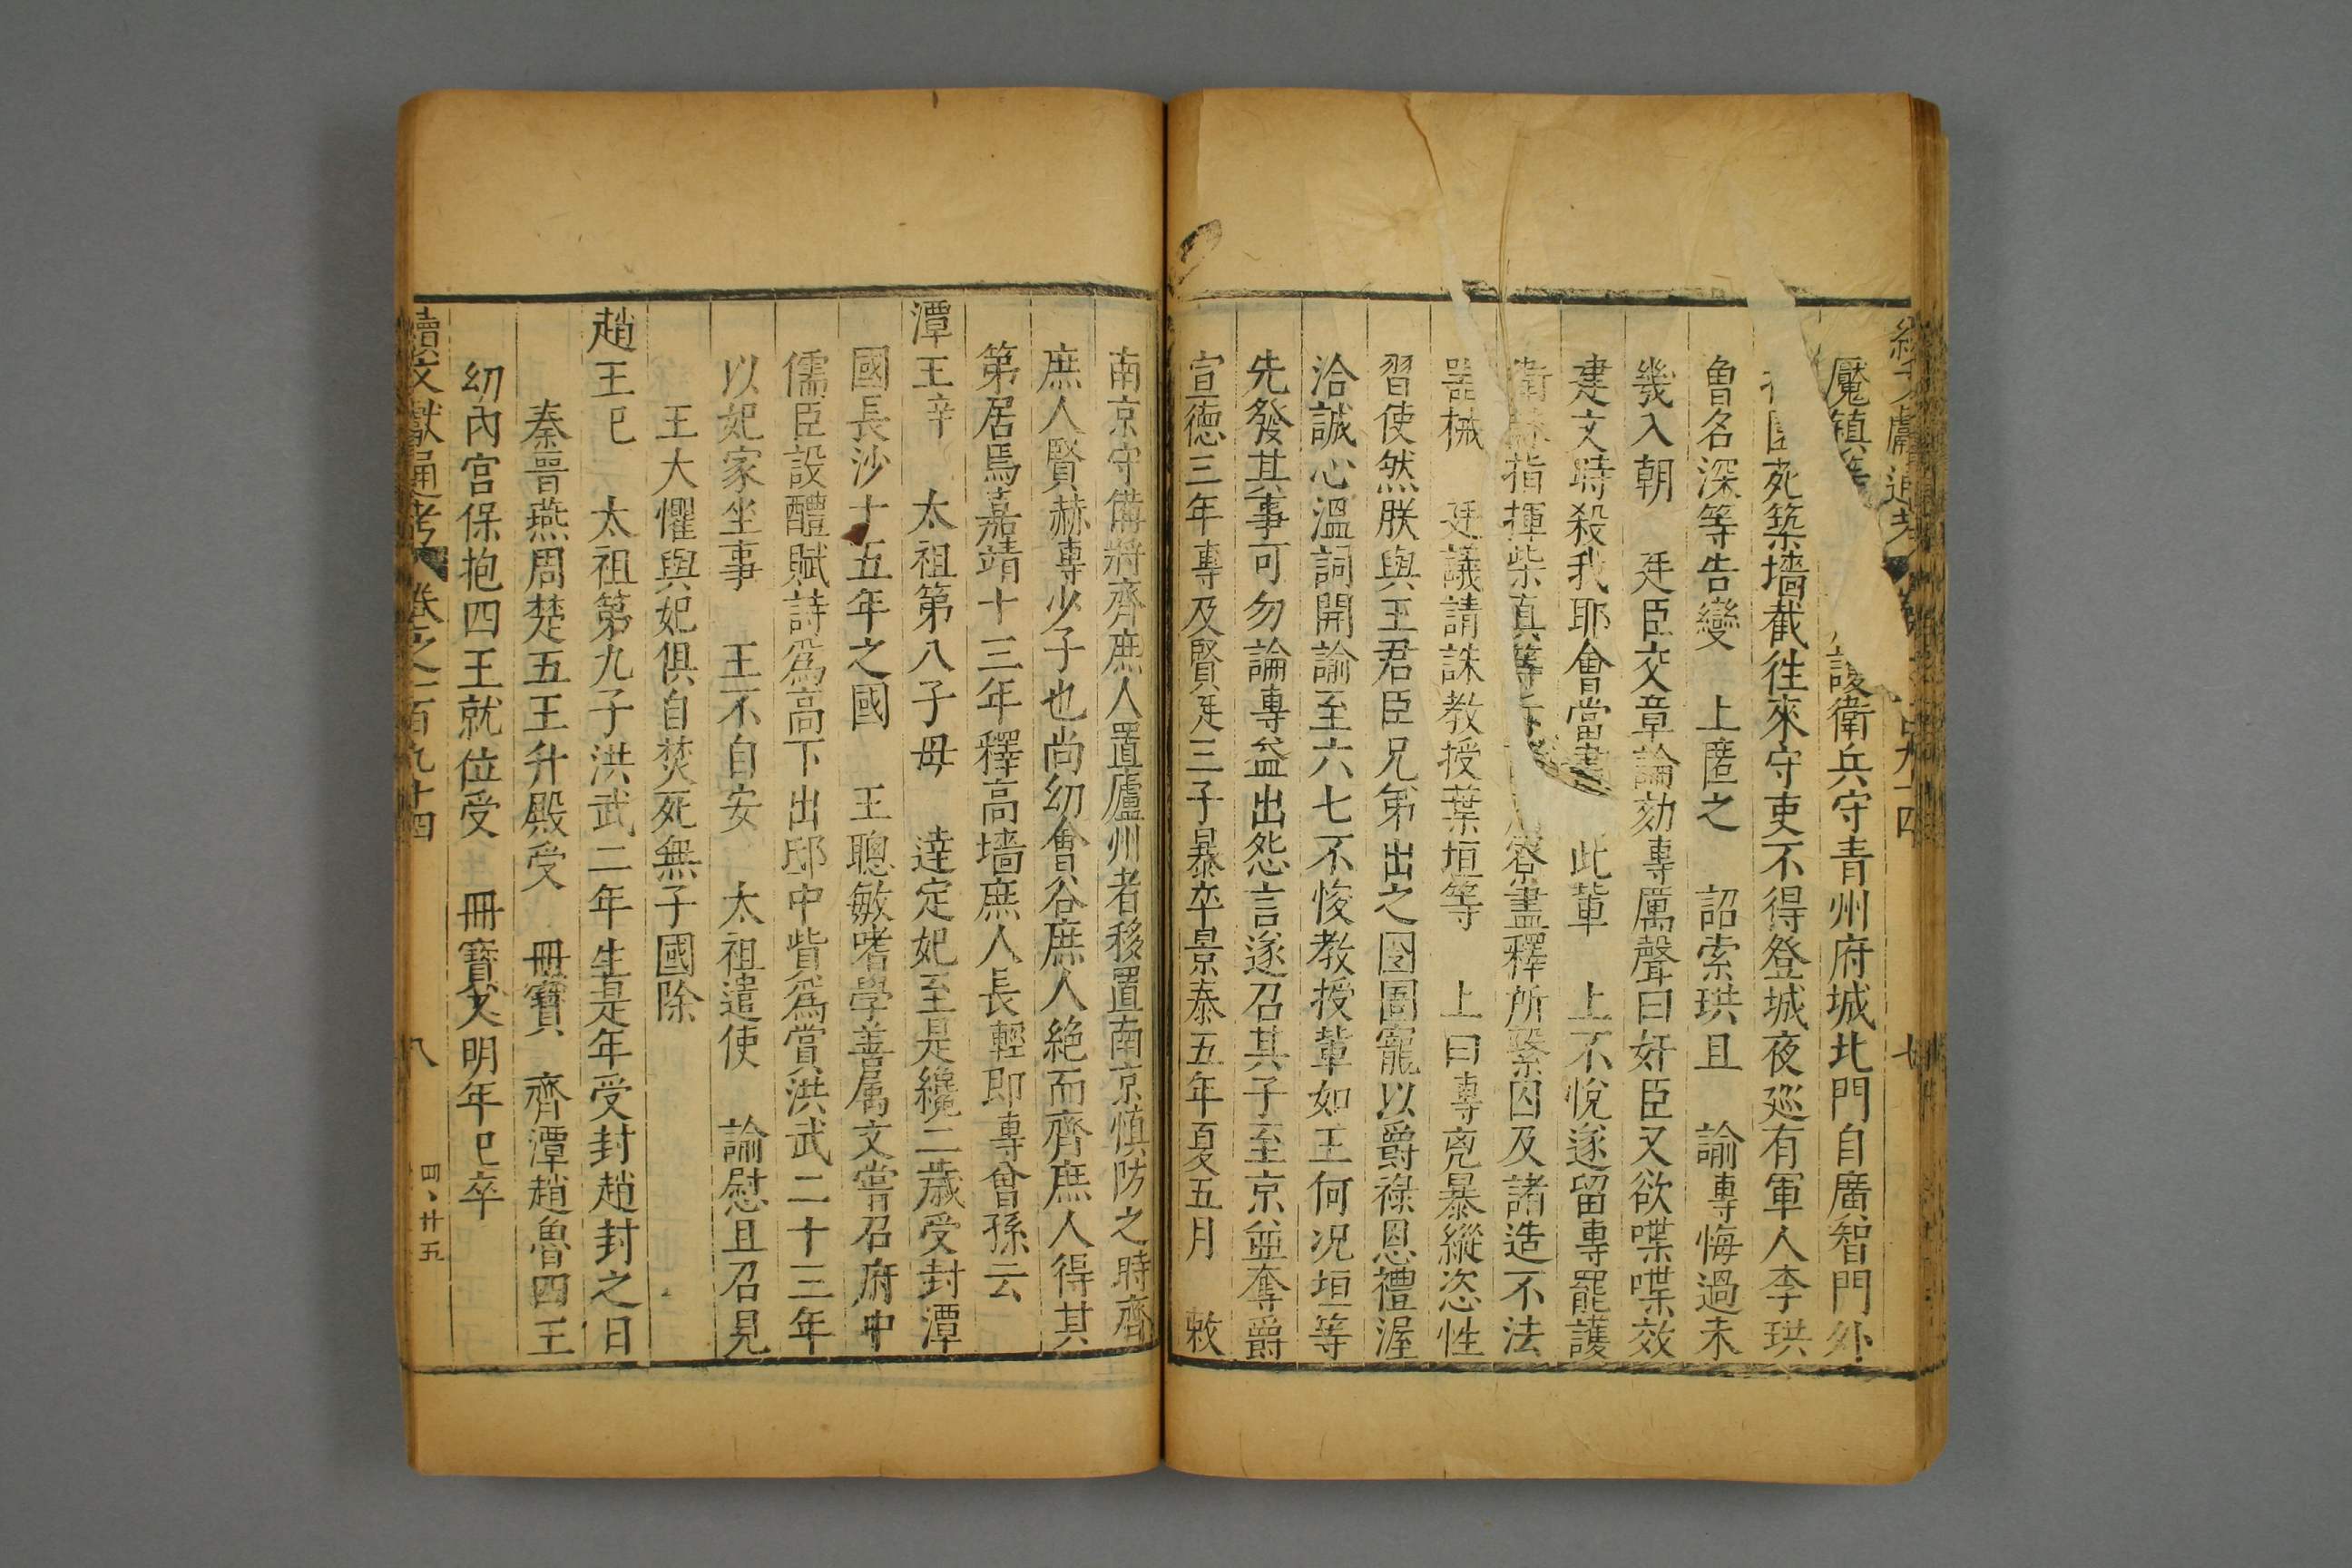 魘鎮等護衛兵守青州府城北門自廣智門外
苑築墻截徃來守吏不得登城夜廵有軍人李珙
魯名深等告變 上匿之 詔索珙且 諭專悔過未
幾入朝 廷臣交章論劾專厲聲曰奸臣又欲喋喋效
建文時殺我耶會當盡此輩 上不悅遂留專罷護
指揮柴真等寮盡釋所繫囚及諸造不法
噐械 廷議請誅教授葉垣等 上曰專兇暴縱恣性
習使然朕與王君臣兄弟出之囹圄寵以爵祿恩禮渥
洽誠心溫詞開諭至六七不悛教授輩如王何況垣等
先發其事可勿論專益出怨言遂召其子至京並奪爵
宣德三年專及賢廷三子暴卒景泰五年夏五月 敕
南京守備將齊庶人置廬州者移置南京慎防之時齊
庶人賢赫專少子也尚幼會谷庶人絕而齊庶人得其
第居焉嘉靖十三年釋高墻庶人長輕即專曾孫云
潭王辛 太祖第八子母 逹定妃至是纔二歲受封潭
國長沙十五年之國 王聰敏嗜學善属文嘗召府中
儒臣設醴賦詩爲高下出邸中貲爲賞洪武二十三年
以妃家坐事 王不自安 太祖遣使 諭慰且召見
王大懼與妃俱自焚死無子國除
趙王 太祖第九子洪武二年生是年受封趙封之日
秦晋燕周楚五王升殿受 冊寶 齊潭趙魯四王
幼內宮保抱四王就位受 冊寶 明年卒
續文獻通考 卷之一百九十四 八
四、廿五